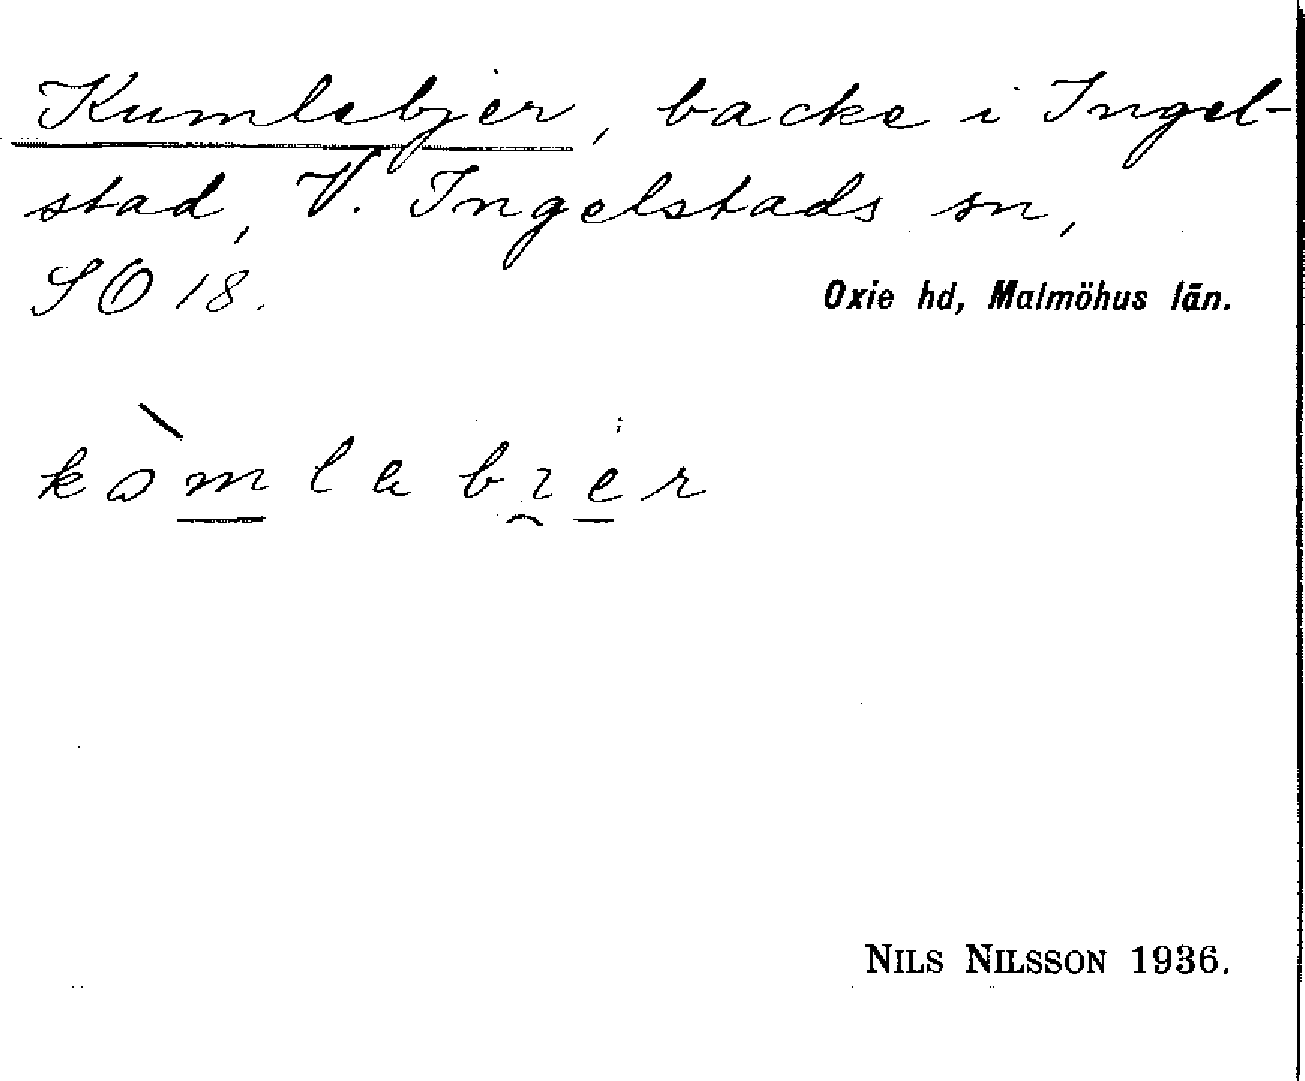 Kumlebjer, backe i Ingel-
stad, V. Ingelstads sn,
SO 18.
Oxie hd, Malmöhus län.
kòmlabier
NILS NILSSON 1936.